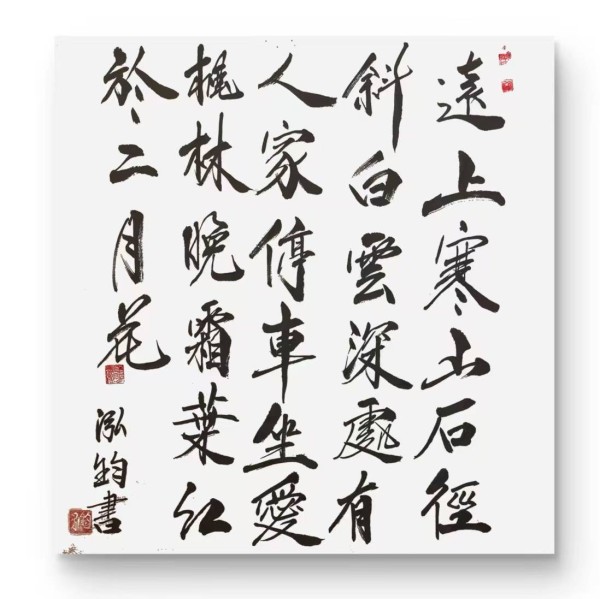 遠上寒山石徑
斜白雲深處有
人家停車坐愛
楓林晚霜葉紅
於二月花
泓鈞書